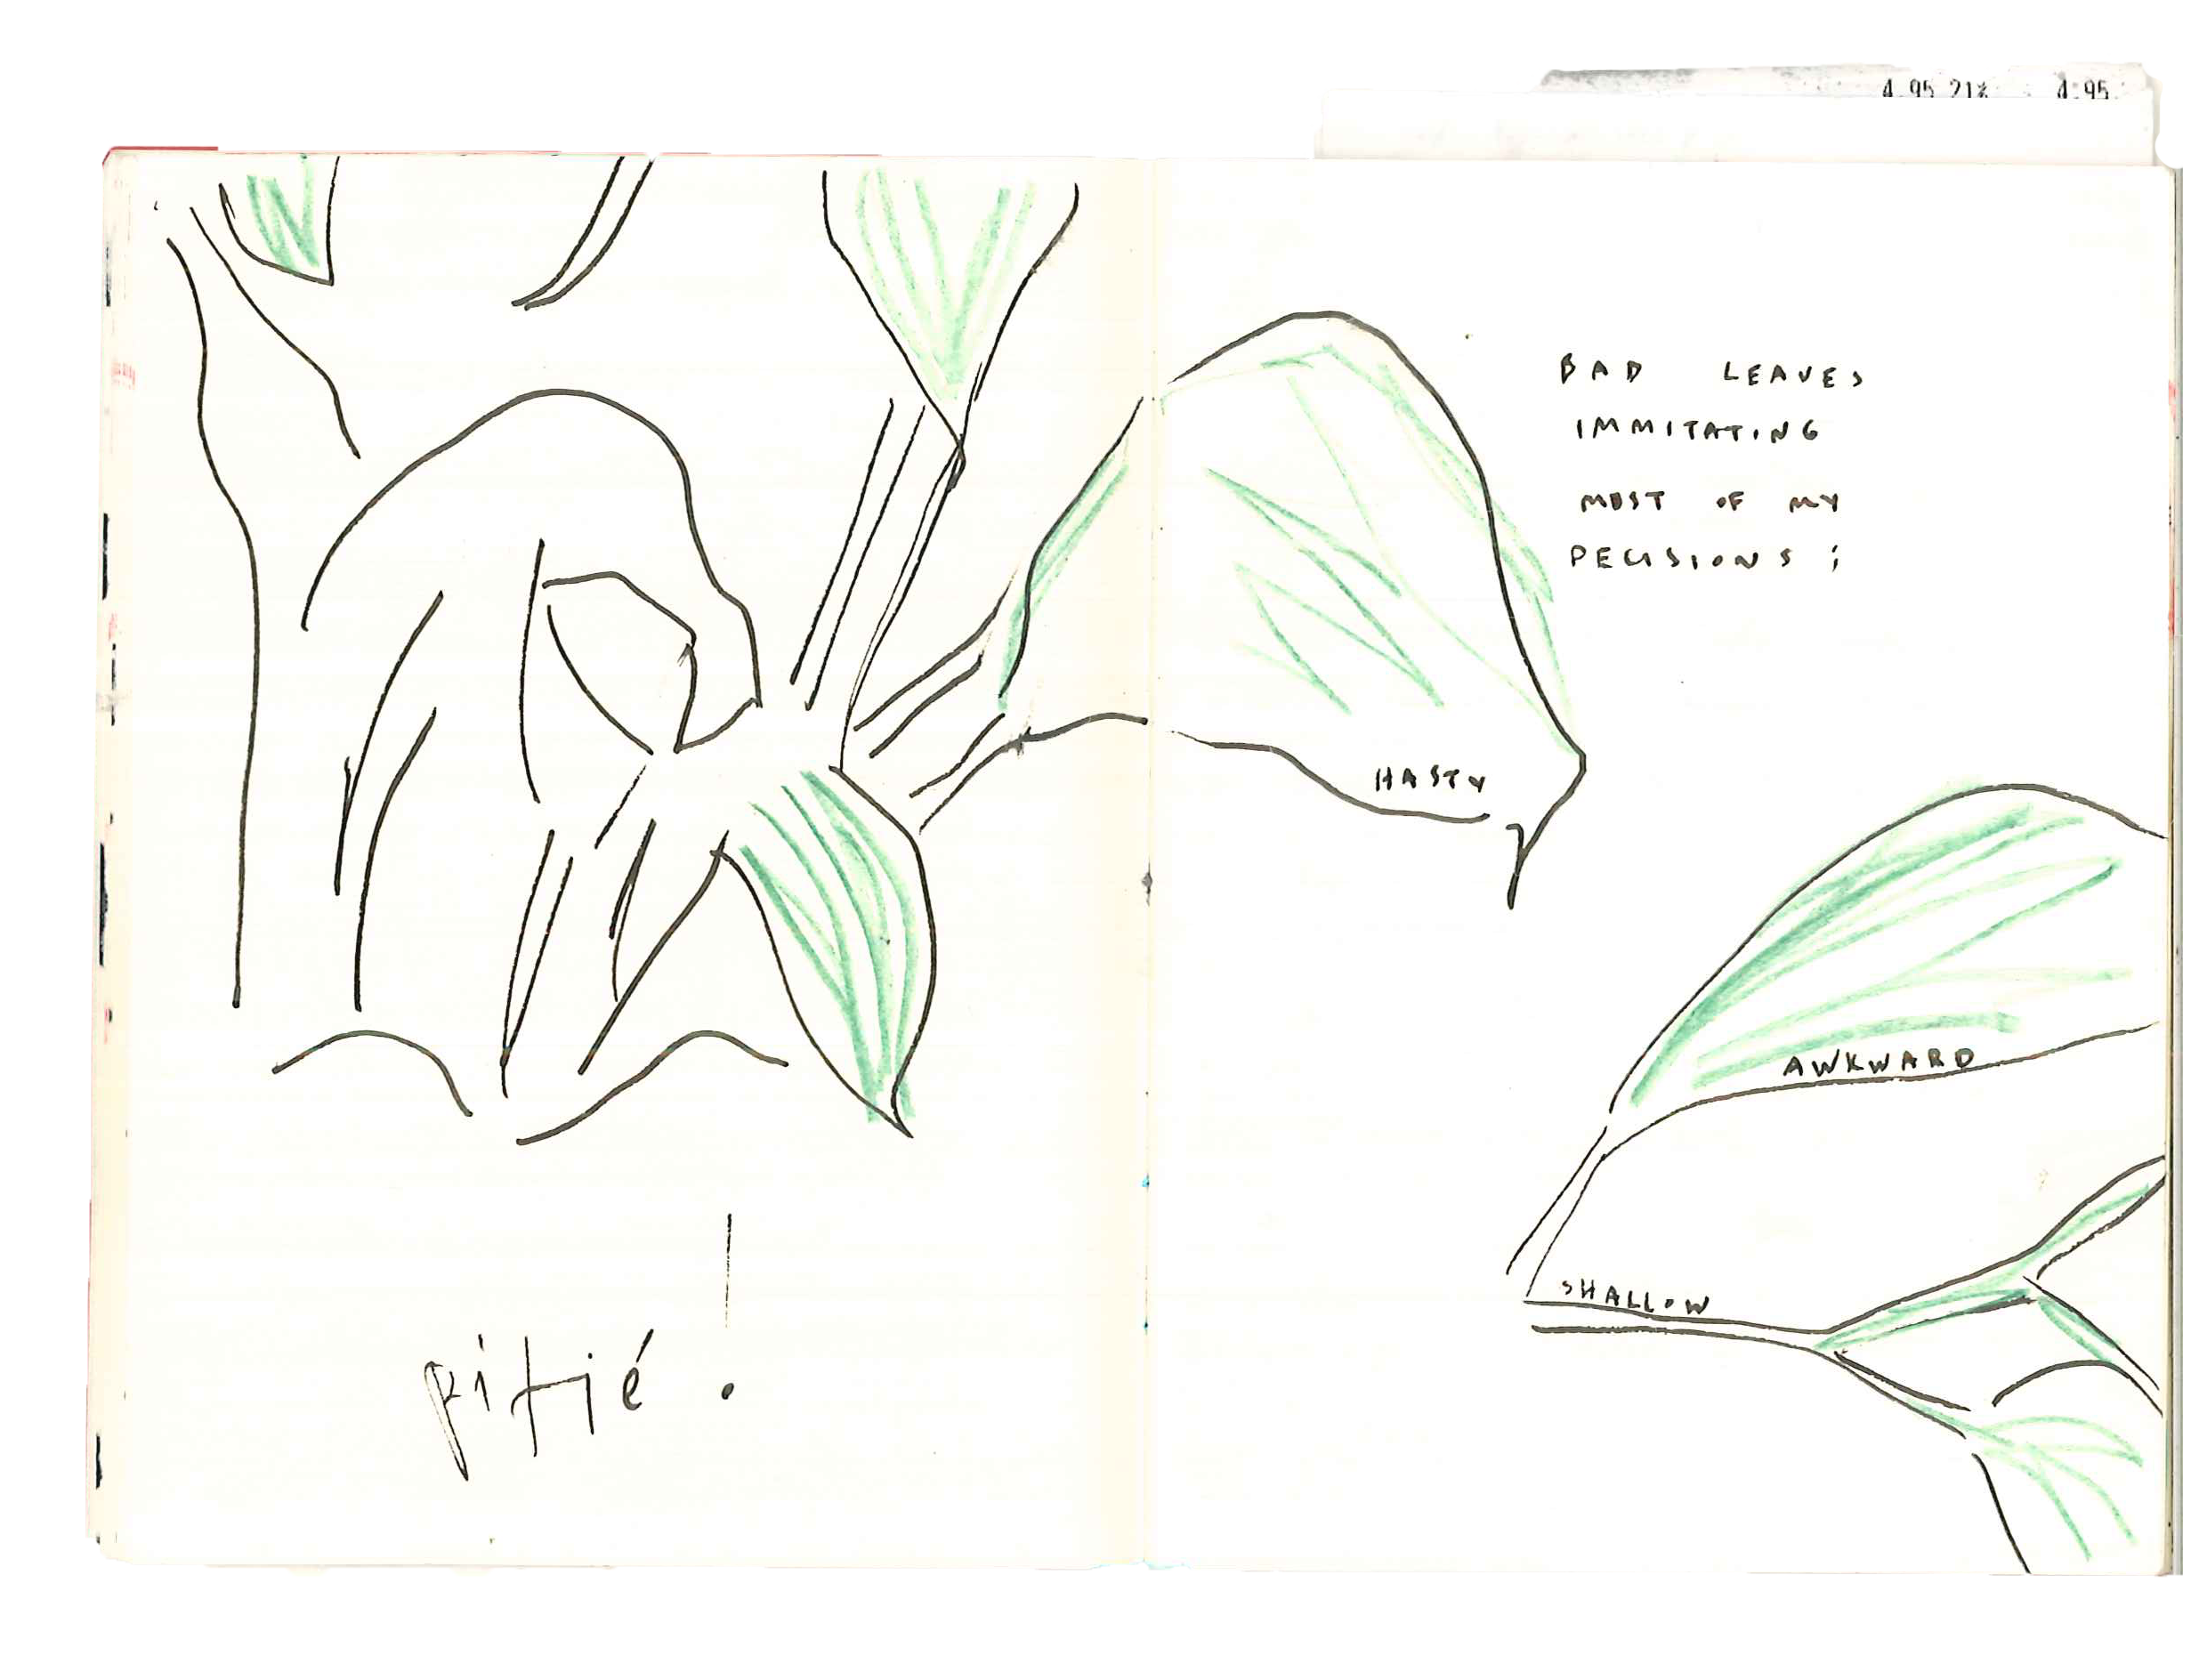 4.95 21% 4.95
BAD LEAVES
IMMITATING
MOST OF MY
DECISIONS ;
HASTY
AWKWARD
SHALLOW
pitié !